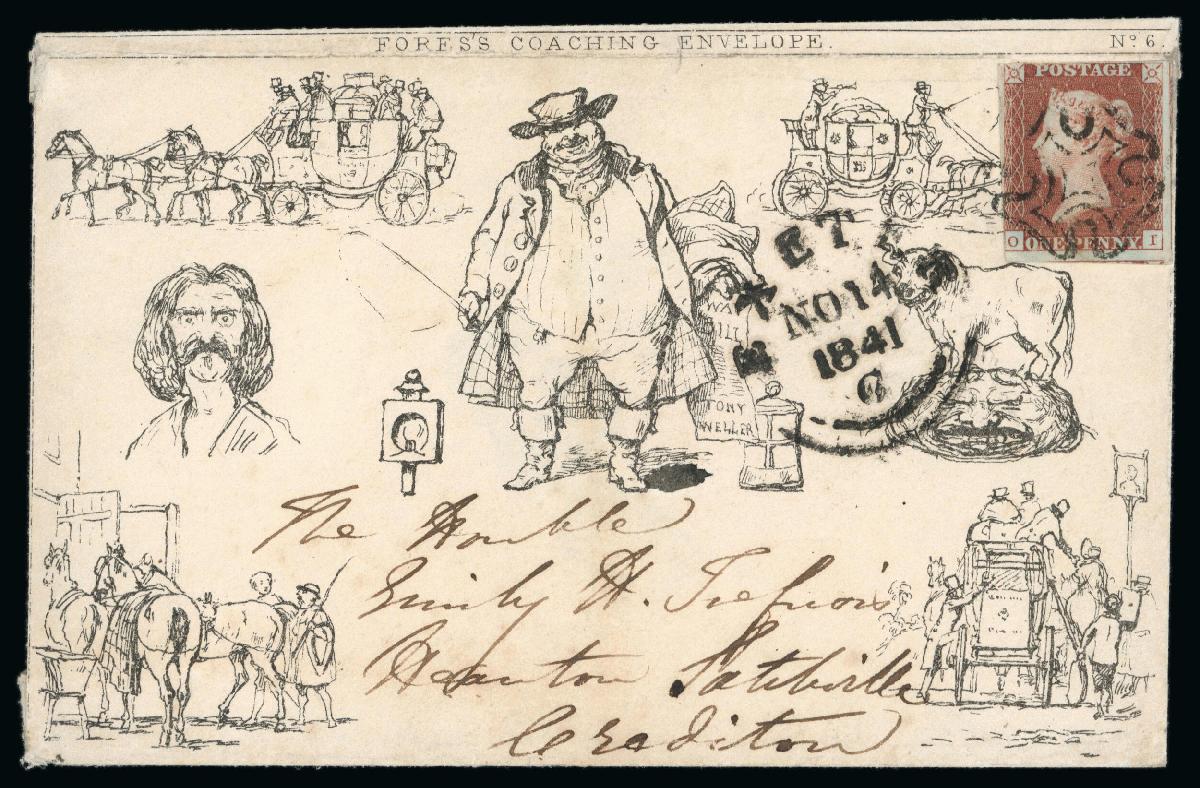 FORES'S COACHING ENVELOPE. No. 6.
POSTAGE
O ONE PENNY I
EXETER
NO 14
1841
C
TONY
WELLER
The Honble
Emily H. Trefusis
Heanton Satchville
Crediton